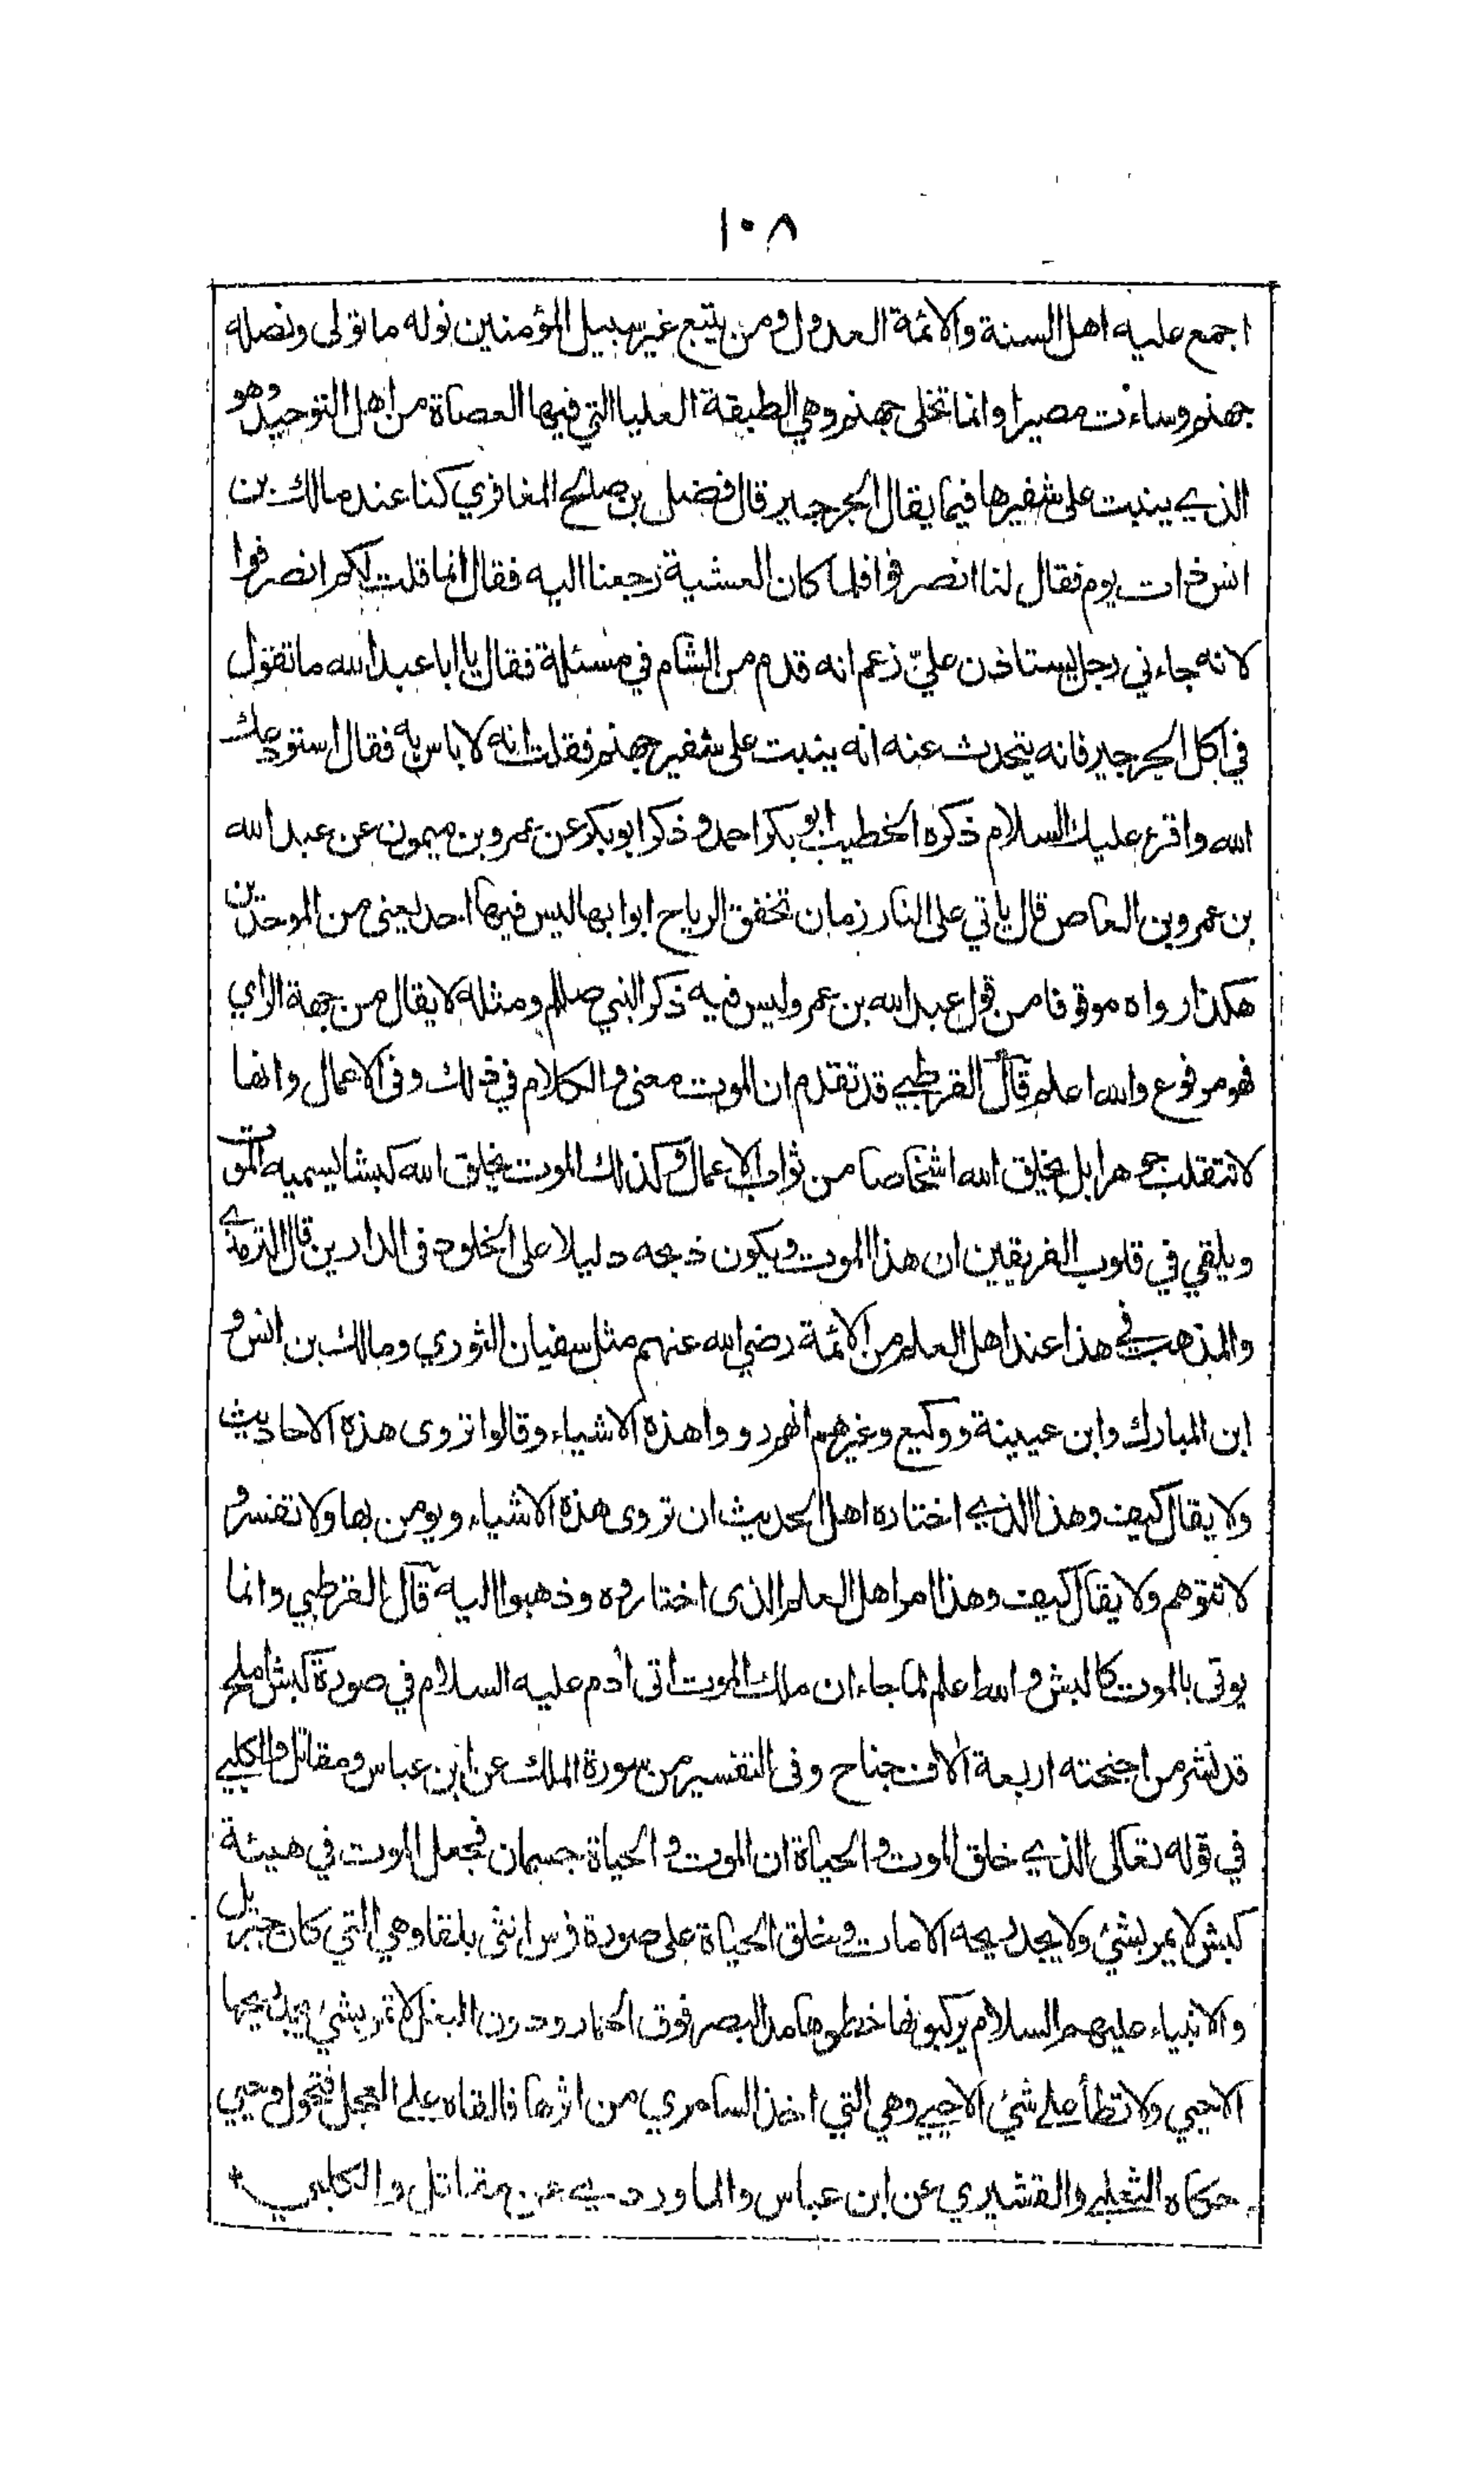 ١٠٨
اجمع عليه اهل السنة والائمة العدول ومن يتبع غير سبيل المؤمنين نوله ما تولى ونصله
جهنم وساءت مصيرا وانما تخلى جهنم وهي الطبقة العليا التي فيها العصاة من اهل التوحيد وهو
الذي ينبت على شفيرها فيما يقال الجرجير قال فضل بن صالح المغافري كنا عند مالك بن
انس ذات يوم فقال لنا انصرفوا فلما كان العشية رجعنا اليه فقال انما قلت لكم انصرفوا
لانه جاءني رجل يستاذن عليّ زعم انه قدم من الشام في مسئلة فقال يا ابا عبد الله ما تقول
في اكل الجرجير فانه يتحدث عنه انه ينبت على شفير جهنم فقلت انه لا باس به فقال استودعك
الله واقرء عليك السلام ذكره الخطيب ابو بكر احمد وذكر ابو بكر عن عمرو بن ميمون عن عبد الله
بن عمرو بن العاص قال ياتي على النار زمان تخفق الرياح ابوابها ليس فيها احد يعنى من الموحدين
هكذا رواه موقوفا من قول عبد الله بن عمرو وليس فيه ذكر النبي صللم ومثله لا يقال من جهة الراي
فهو مرفوع والله اعلم قال القرطبي قد تقدم ان الموت معنى والكلام في ذلك وفى الاعمال وانها
لا تنقلب جوهرا بل يخلق الله اشخاصا من ثواب الاعمال وكذلك الموت يخلق الله كبشا يسميه الموت
ويلقي في قلوب الفريقين ان هذا الموت ويكون ذبحه دليلا على الخلود فى الدارين قال الترمذي
والمذهب في هذا عند اهل العلم من الائمة رضي الله عنهم مثل سفيان الثوري ومالك بن انس و
ابن المبارك وابن عيينة ووكيع وغيرهم انهم رووا هذه الاشياء وقالوا تروى هذه الاحاديث
ولا يقال كيف وهذا الذي اختاره اهل الحديث ان تروى هذه الاشياء ويومن بها ولا تفسر و
لا تتوهم ولا يقال كيف وهذا امر اهل العلم الذى اختاروه وذهبوا اليه قال القرطبي وانما
يوتى بالموت كالبش والله اعلم لما جاء ان ملك الموت اتى أدم عليه السلام في صورة كبش املح
قد نشر من اجنحته اربعة ألاف جناح وفى التفسير من سورة الملك عن ابن عباس ومقاتل والكلبي
في قوله تعالى الذي خلق الموت والحياة ان الموت والحياة جسمان فجعل الموت في هيئة
كبش لا يمر بشئ ولا يجد ريحه الا مات وخلق الحياة على صورة فرس انثى بلقا وهي التي كان جبريل
والانبياء عليهم السلام يركبونها خطوها مد البصر فوق الحمار ودون البغل لا تمر بشئ يجد ريحها
الا حيي ولا تطأ على شئ الا حيي وهي التي اخذ السامري من اثرها فالقاه على العجل فتحول وحيي
حكاه الثعلبي والقشيري عن ابن عباس والماوردي عن مقاتل والكلبي